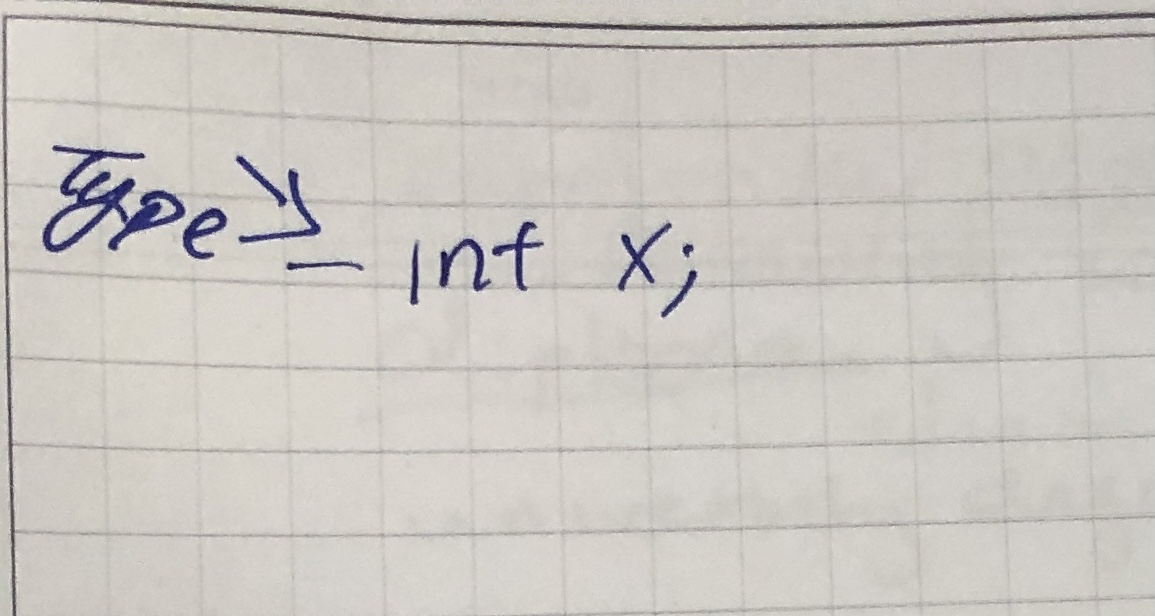 Type ↘ _ int x;